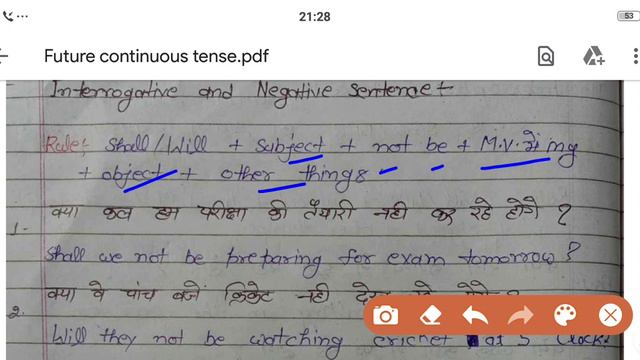 21:28
53
Future continuous tense.pdf
Interrogative and Negative sentence
Rule: Shall/Will + Subject + not be + M.V. में ing
+ object + other things
1- क्या कल हम परीक्षा की तैयारी नही कर रहे होंगे ?
Shall we not be preparing for exam tomorrow?
2. क्या वे पांच बजे क्रिकेट नही
Will they not be watching cricket at 5